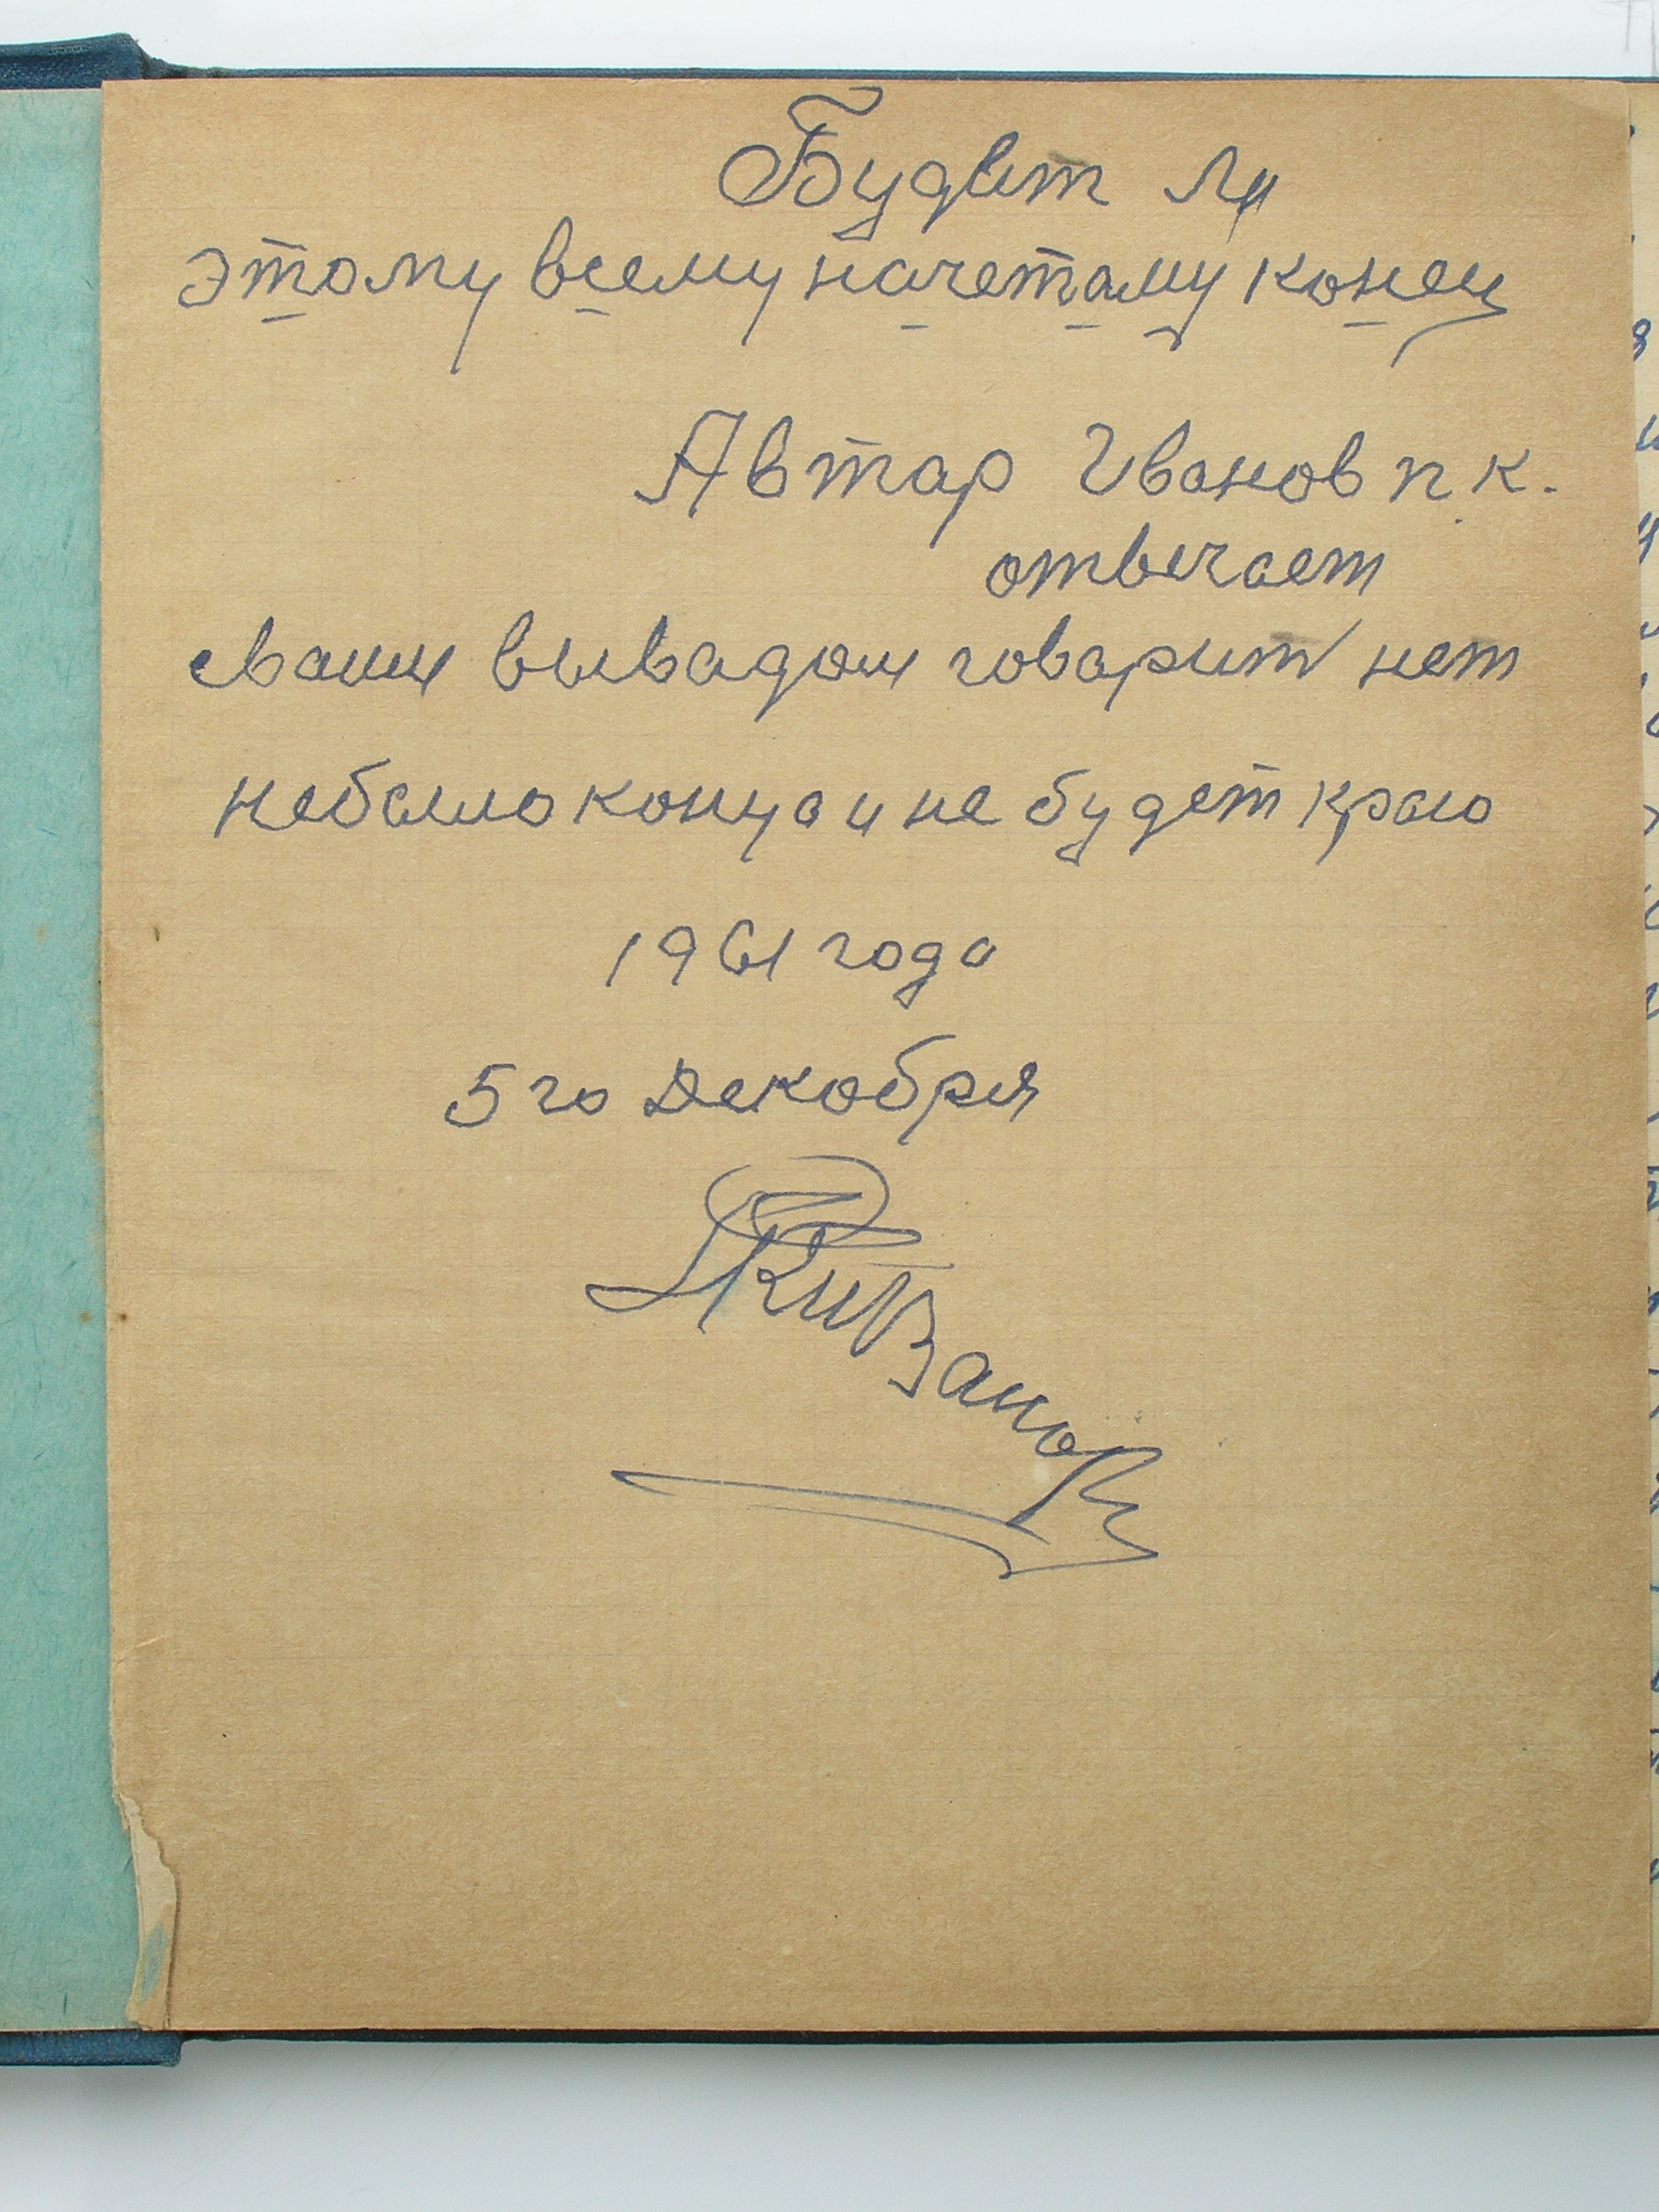 Будет ли
этому всему начетаму конец
Автар Иванов п к.
отвечает
сваим вывадом говарит нет
небыло конца и не будет краю
1961 года
5 го Декобря
ПКИванов